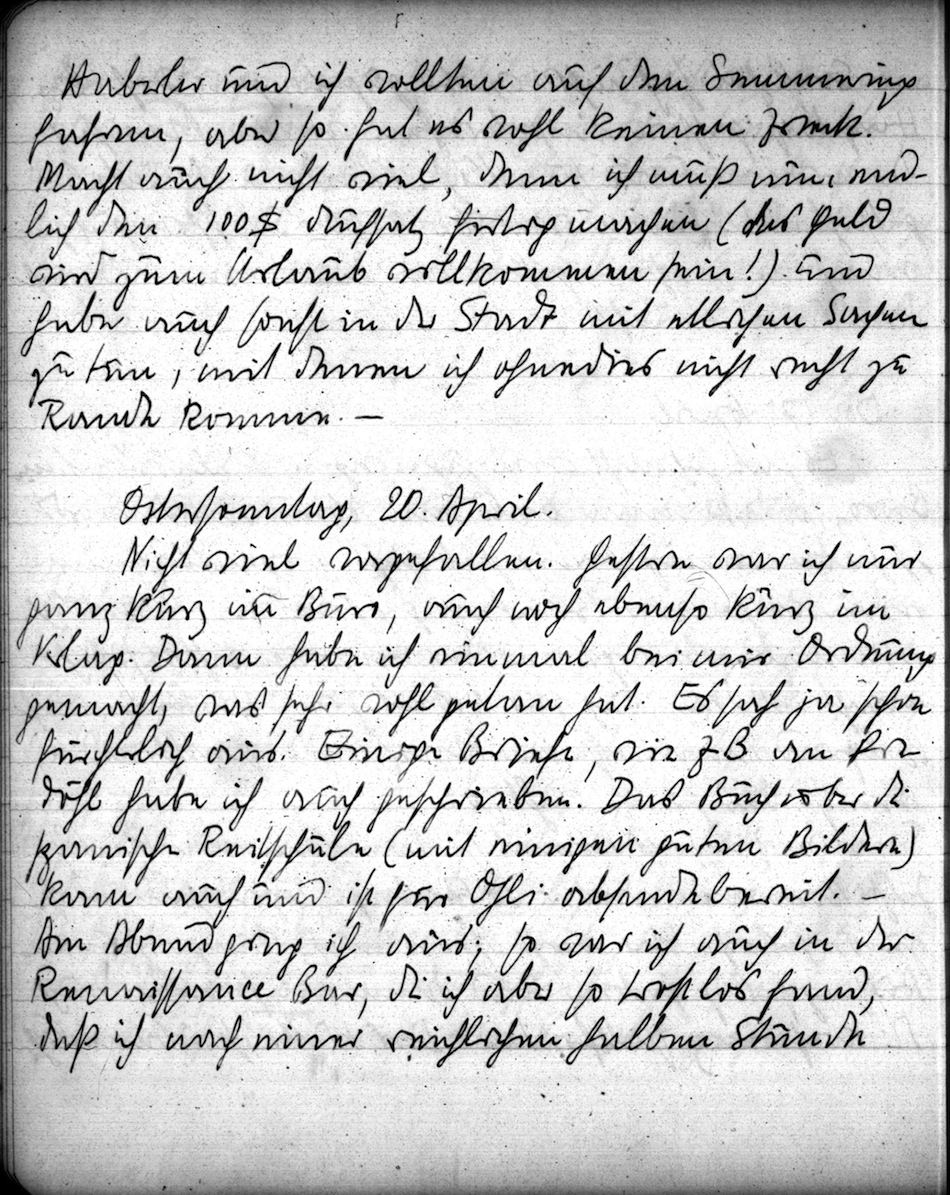 Haberler und ich wollten auf den Semmering
fahren, aber so hat es wohl keinen Zweck.
Macht auch nicht viel, denn ich muß nun end-
lich den 100$ Aufsatz fertig machen (das Geld
wird zum Urlaub vollkommen sein!) und
habe auch sonst in der Stadt mit etlichen Sachen
zu tun, mit denen ich ohnedies nicht recht zu
Rande komme. —
Ostersonntag, 20. April.
Nicht viel vorgefallen. Gestern war ich nur
ganz kurz im Büro, auch noch ebenso kurz im
Verlag. Dann habe ich einmal bei mir Ordnung
gemacht, was sehr wohl getan hat. Es sah ja schon
fürchterlich aus. Einige Briefe, wie z B an
habe ich auch geschrieben. Das Buch über die
spanische Reitschule (mit einigen guten Bildern)
kam auch und ist für absendebereit. —
Am Abend ging ich aus; so war ich auch in der
Renaissance Bar, die ich aber so trostlos fand,
daß ich nach einer reichlichen halben Stunde